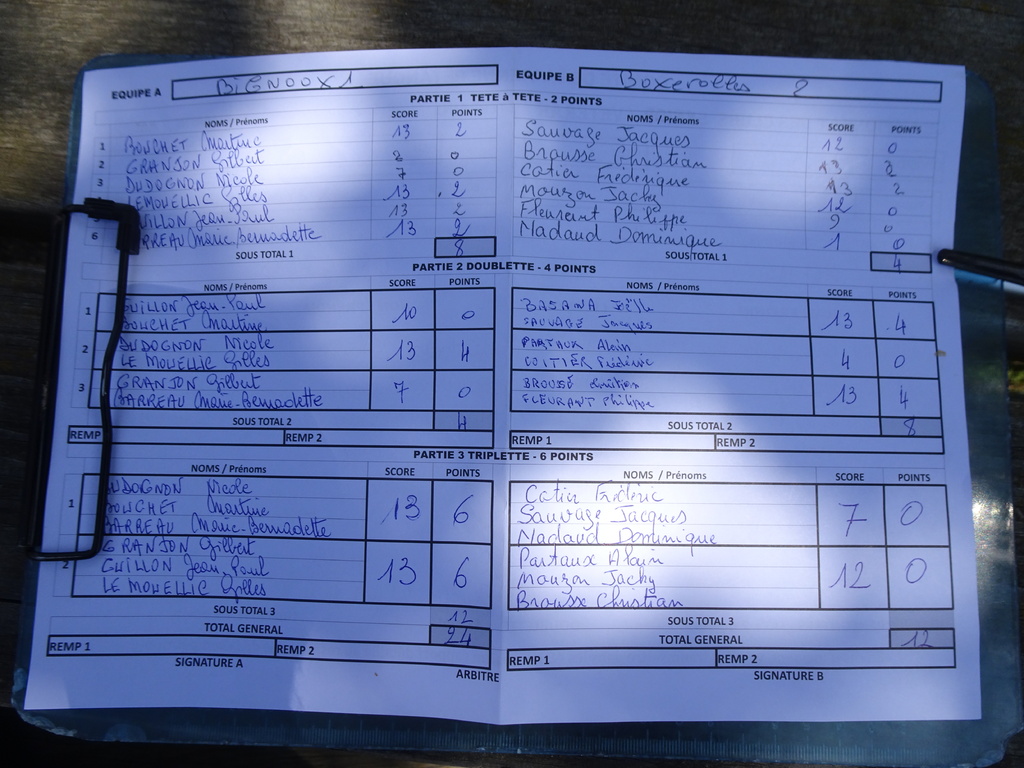 EQUIPE A BIGNOUX 1 EQUIPE B Boxerolles 2
PARTIE 1 TETE à TETE - 2 POINTS
NOMS / Prénoms SCORE POINTS NOMS / Prénoms SCORE POINTS
1 BOUCHET Martine 13 2 Sauvage Jacques 12 0
2 GRANJON Gilbert 2 0 Brousse Christian 13 2
3 DUDOGNON Nicole 7 0 Cotier Frédérique 13 2
LEMOUELLIC Gilles 13 2 Mouzon Jacky 12 0
GUILLON Jean-Paul 13 2 Fleurent Philippe 9 0
6 BARREAU Marie-Bernadette 13 2 Madaud Dominique 1 0
SOUS TOTAL 1 8 SOUS TOTAL 1 4
PARTIE 2 DOUBLETTE - 4 POINTS
NOMS / Prénoms SCORE POINTS NOMS / Prénoms SCORE POINTS
1 GUILLON Jean-Paul 10 0 BASANA Joëlle 13 4
BOUCHET Martine SAUVAGE Jacques
2 DUDOGNON Nicole 13 4 PARTAUX Alain 4 0
LE MOUELLIC Gilles COITIER Frédéric
3 GRANJON Gilbert 7 0 BROUSSE Christian 13 4
BARREAU Marie-Bernadette FLEURANT Philippe
SOUS TOTAL 2 4 SOUS TOTAL 2 8
REMP REMP 2 REMP 1 REMP 2
PARTIE 3 TRIPLETTE - 6 POINTS
NOMS / Prénoms SCORE POINTS NOMS / Prénoms SCORE POINTS
1 DUDOGNON Nicole 13 6 Cotier Fréderic 7 0
BOUCHET Martine Sauvage Jacques
BARREAU Marie-Bernadette Madaud Dominique
2 GRANJON Gilbert 13 6 Partaux Alain 12 0
GUILLON Jean-Paul Mouzon Jacky
LE MOUELLIC Gilles Brousse Christian
SOUS TOTAL 3 12 SOUS TOTAL 3
TOTAL GENERAL 24 TOTAL GENERAL 12
REMP 1 REMP 2 REMP 1 REMP 2
SIGNATURE A ARBITRE SIGNATURE B